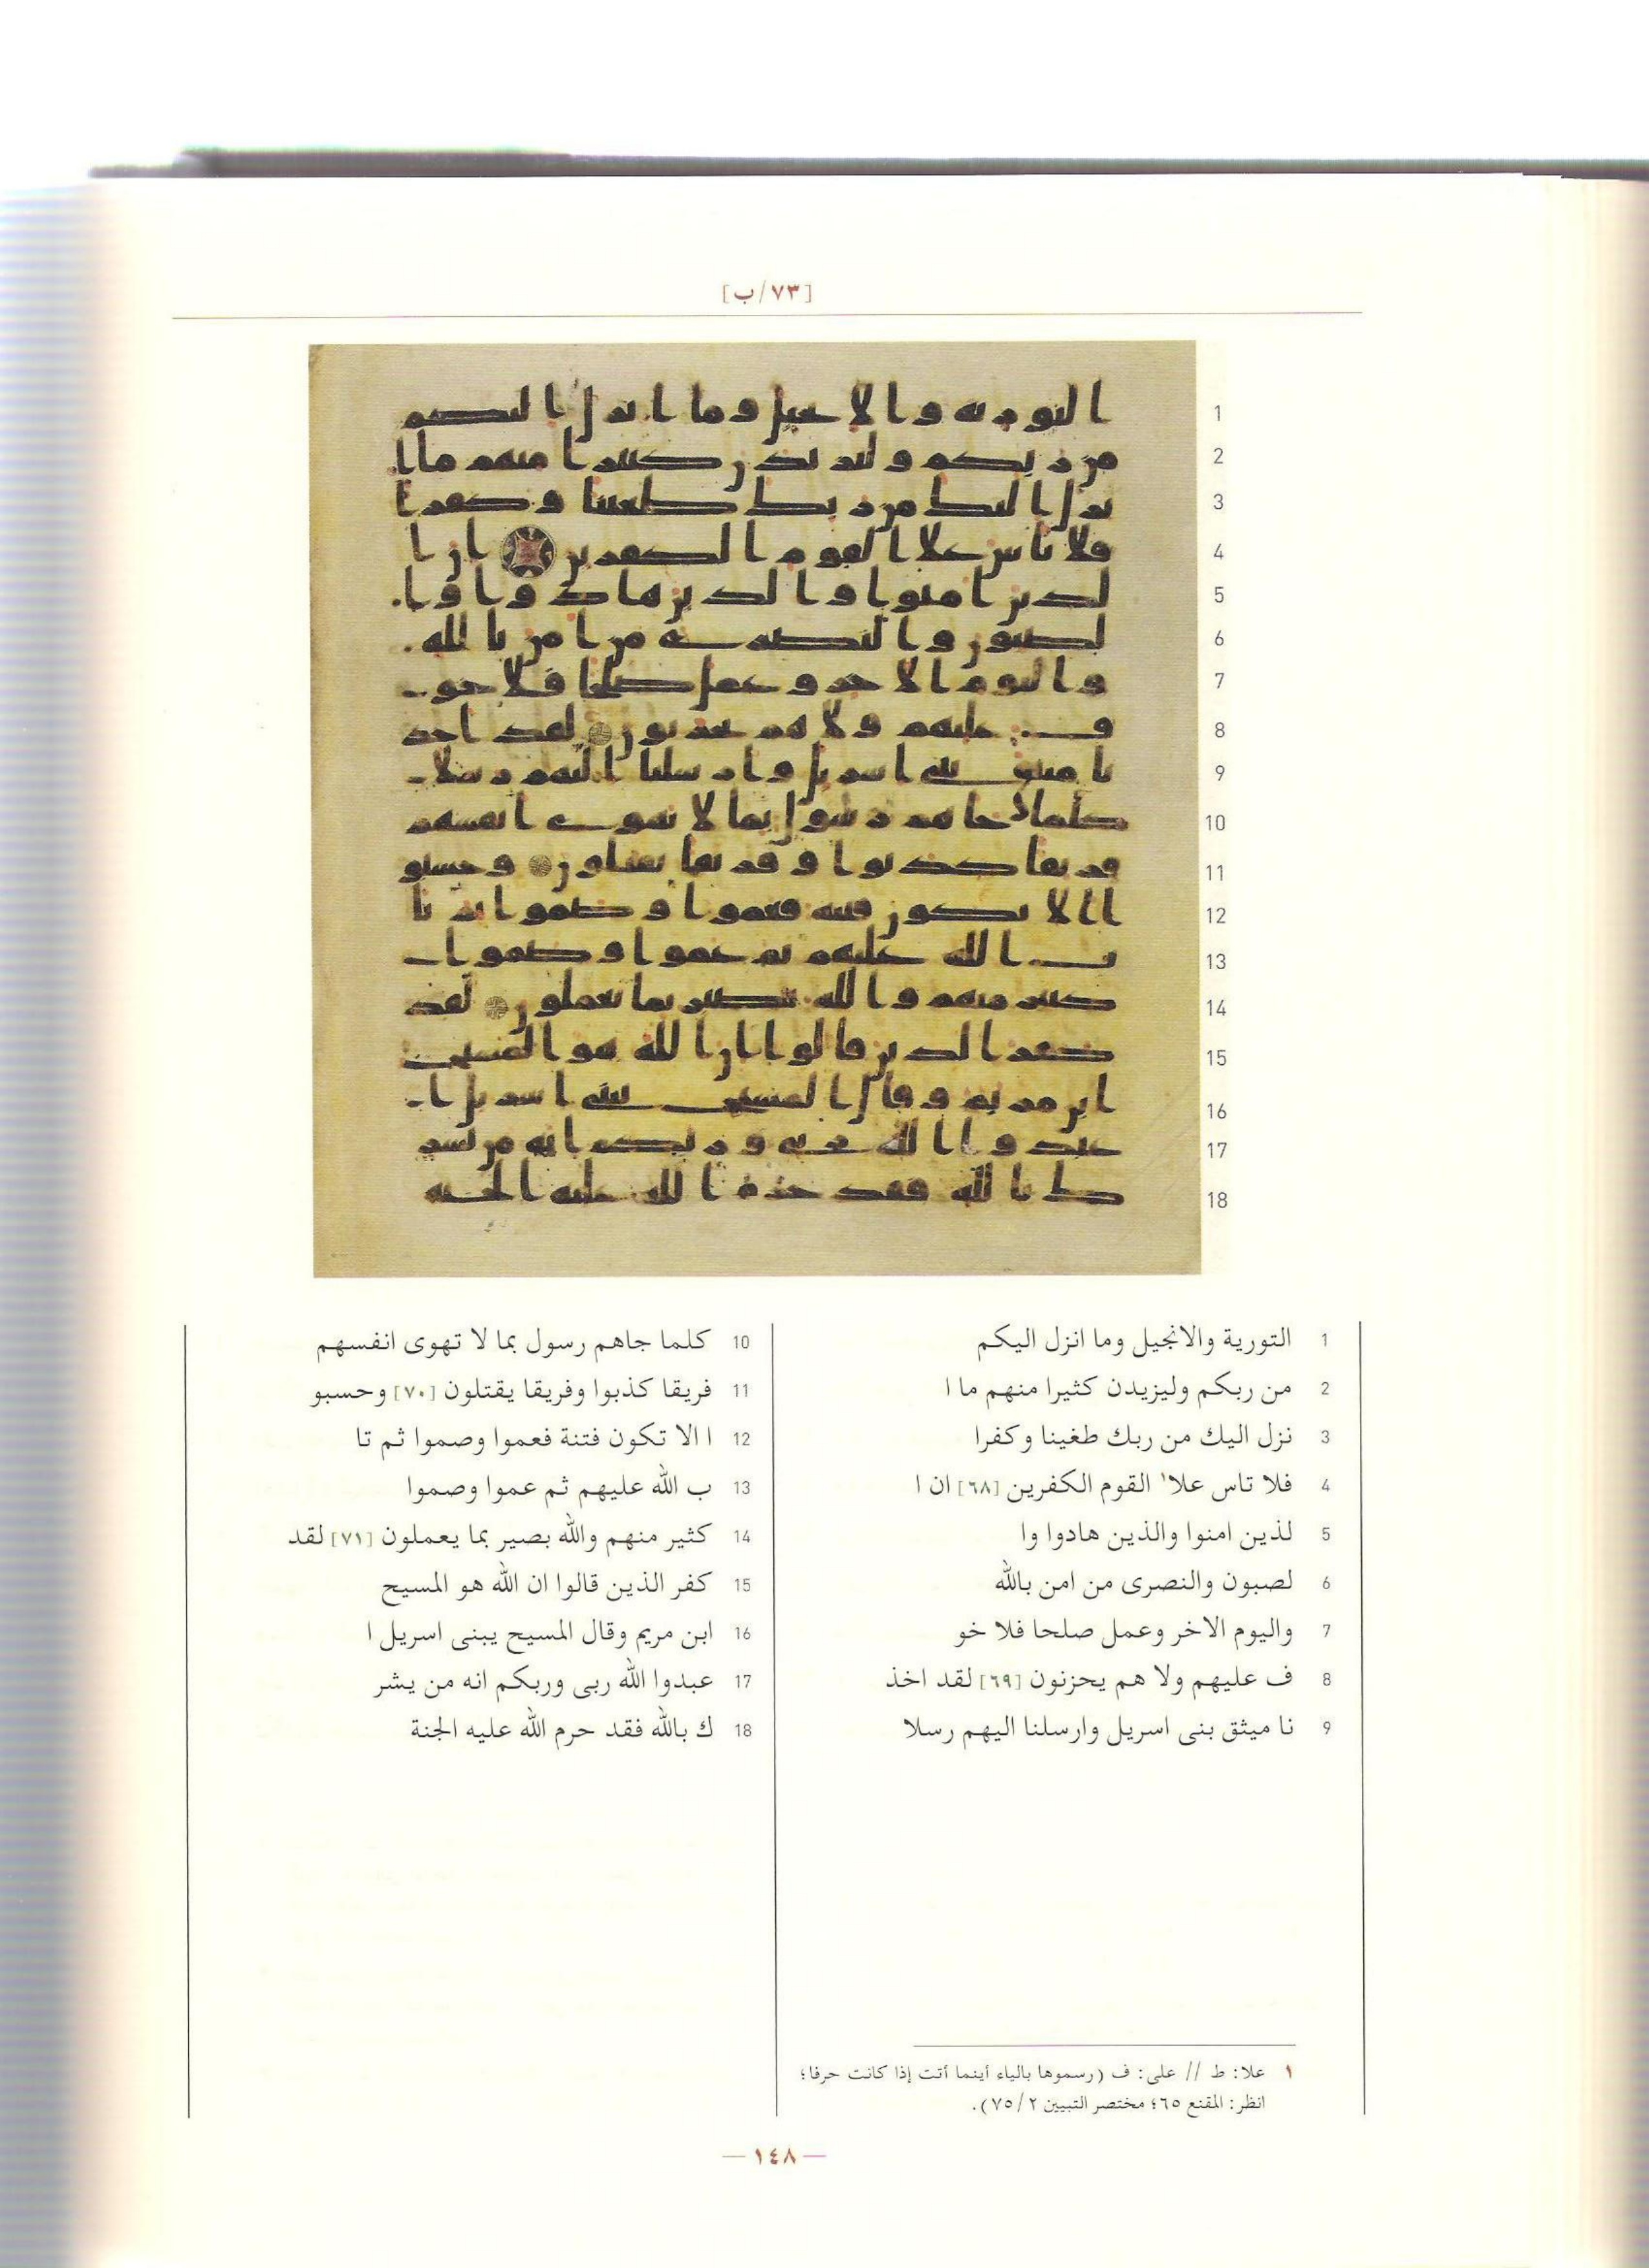 [٧٣/ب]
1 التورية والانجيل وما انزل اليكم
2 من ربكم وليزيدن كثيرا منهم ما ا
3 نزل اليك من ربك طغينا وكفرا
4 فلا تاس علا١ القوم الكفرين [٦٨] ان ا
5 لذين امنوا والذين هادوا وا
6 لصبون والنصرى من امن بالله
7 واليوم الاخر وعمل صلحا فلا خو
8 ف عليهم ولا هم يحزنون [٦٩] لقد اخذ
9 نا ميثق بنى اسريل وارسلنا اليهم رسلا
10 كلما جاهم رسول بما لا تهوى انفسهم
11 فريقا كذبوا وفريقا يقتلون [٧٠] وحسبو
12 ا الا تكون فتنة فعموا وصموا ثم تا
13 ب الله عليهم ثم عموا وصموا
14 كثير منهم والله بصير بما يعملون [٧١] لقد
15 كفر الذين قالوا ان الله هو المسيح
16 ابن مريم وقال المسيح يبنى اسريل ا
17 عبدوا الله ربى وربكم انه من يشر
18 ك بالله فقد حرم الله عليه الجنة
١ علا: ط // على: ف (رسموها بالياء أينما أتت إذا كانت حرفا؛
انظر: المقنع ٦٥؛ مختصر التبيين ٧٥/٢).
— ١٤٨ —